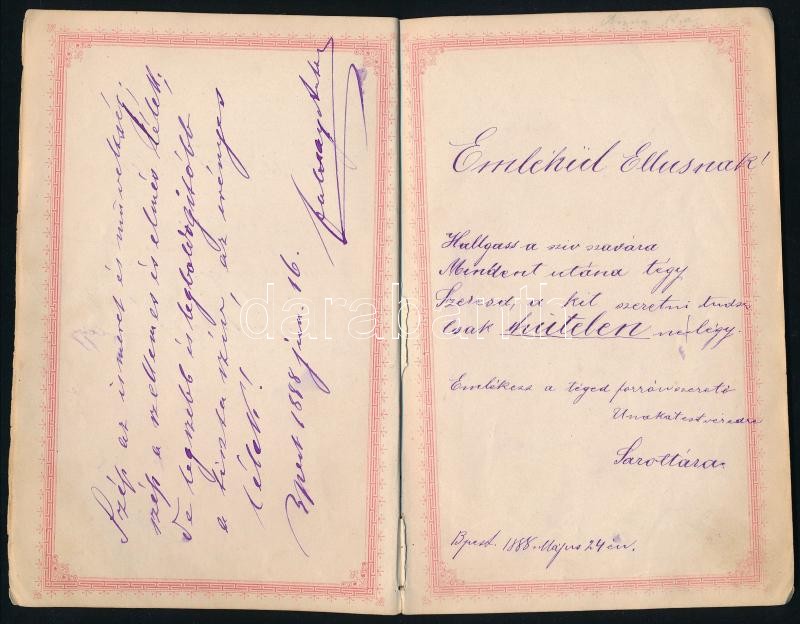 Szép az ismeret és műveltség;
szép a szellemes és elmés lélek.
De legszebb és legboldogítóbb
a tiszta szív, az erényes
lélek!
Bpest 1888 jun. 16.
Emlékül Ellusnak!
Hallgass a sziv szavára
Mindent utána tégy
Szeresd, a kit szeretni tudsz
Csak hütelen ne légy.
Emlékezz a téged forrón szerető
Unokatestvéredre
Sarottára.
Bpest. 1888. Május 24 én.
darabanth